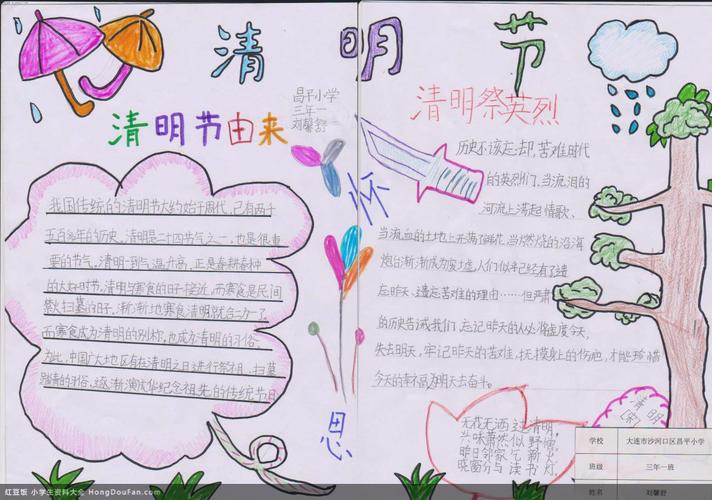 清明节
昌平小学
三年一
刘馨舒
清明节由来
我国传统的清明节大约始于周代,已有两千
五百多年的历史。清明是二十四节气之一,也是很重
要的节气。清明一到气温升高,正是春耕春种
的大好时节,清明与寒食的日子接近,而寒食是民间
禁火扫墓的日子,渐渐地寒食清明就合二为一了
而寒食成为清明的别称,也成为清明的习俗。
为此,中国广大地区有在清明之日进行祭祖、扫墓
踏青的习俗,逐渐演化华纪念祖先的传统节日
怀
思
清明祭英烈
历史不该忘却,苦难时代
的英烈们,当流泪的
河流上荡起情歌,
当流血的土地上开满了鲜花,当燃烧的沿海
炮台渐渐成为废墟,人们似乎已经有了遗
忘昨天,遗忘苦难的理由……但严肃
的历史告诫我们,忘记昨天的人必将虚度今天,
失去明天,牢记昨天的苦难,抚摸身上的伤疤,才能珍惜
今天的幸福为明天去奋斗。
清明
[宋]
无花无酒过清明,
兴味萧然似野僧。
昨日邻家乞新火,
晓窗分与读书灯.
学校 大连市沙河口区昌平小学
班级 三年一班
姓名 刘馨舒
红豆饭 小学生资料大全 HongDouFan.com